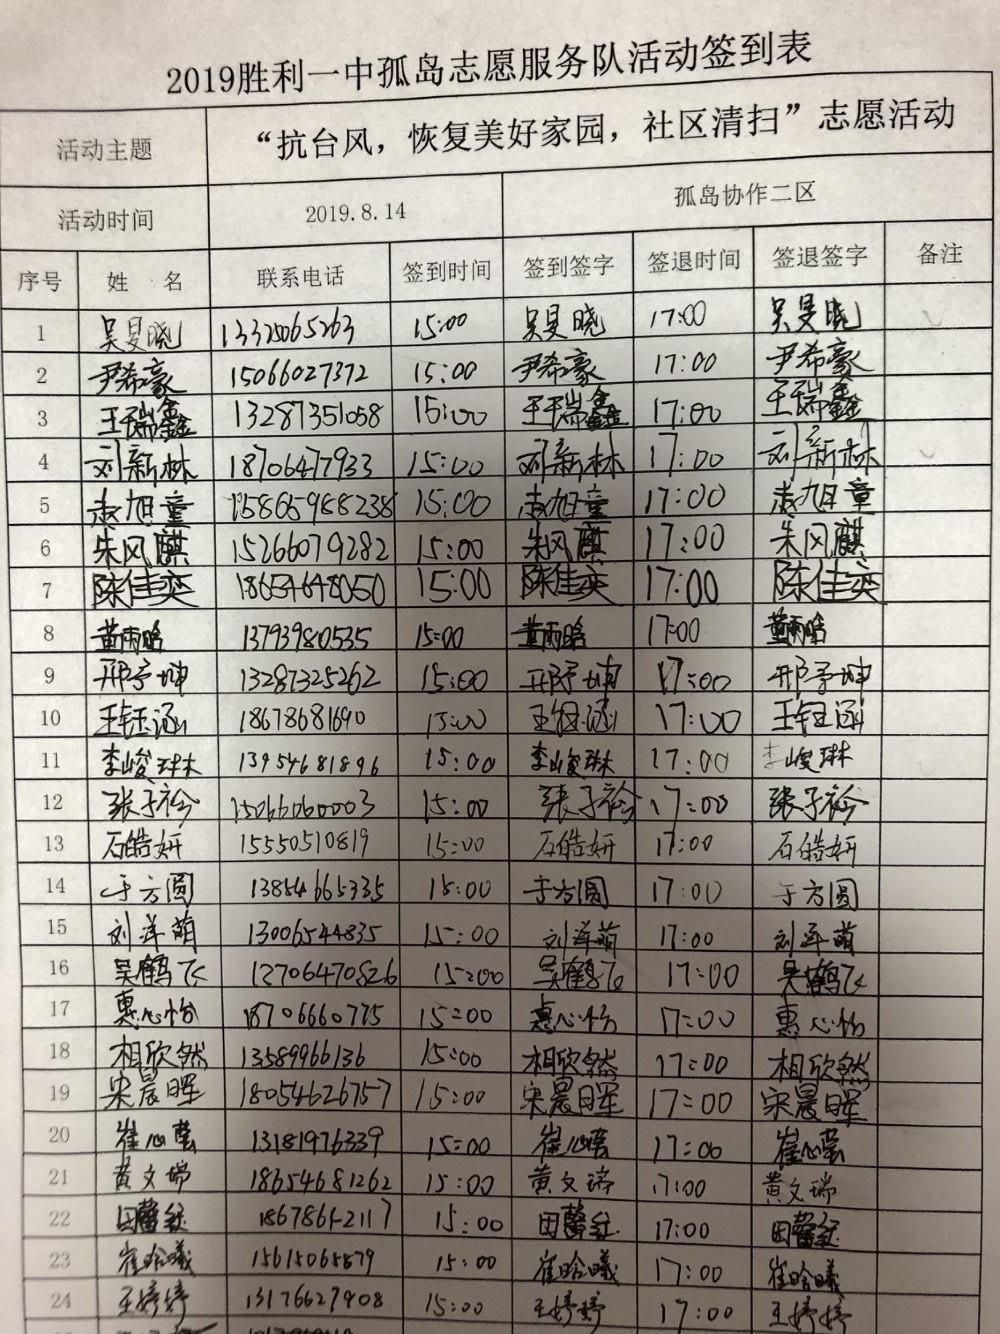 2019胜利一中孤岛志愿服务队活动签到表
活动主题 “抗台风，恢复美好家园，社区清扫”志愿活动
活动时间 2019.8.14 孤岛协作二区
序号 姓 名 联系电话 签到时间 签到签字 签退时间 签退签字 备注
1 吴旻晓 13325065263 15:00 吴旻晓 17:00 吴旻晓
2 尹希豪 15066027372 15:00 尹希豪 17:00 尹希豪
3 王瑞鑫 13287351058 15:00 王瑞鑫 17:00 王瑞鑫
4 刘新林 18706477933 15:00 刘新林 17:00 刘新林
5 赵旭童 15865988238 15:00 赵旭童 17:00 赵旭童
6 朱风麒 15266079282 15:00 朱风麒 17:00 朱风麒
7 陈佳奕 18654648050 15:00 陈佳奕 17:00 陈佳奕
8 董雨晗 13793980535 15:00 董雨晗 17:00 董雨晗
9 邢予坤 13287325262 15:00 邢予坤 17:00 邢予坤
10 王钰涵 18678681690 15:00 王钰涵 17:00 王钰涵
11 李峻琳 13954681896 15:00 李峻琳 17:00 李峻琳
12 张子衿 15066060003 15:00 张子衿 17:00 张子衿
13 石皓妍 15550510819 15:00 石皓妍 17:00 石皓妍
14 于方圆 13854665335 15:00 于方圆 17:00 于方圆
15 刘洋萌 13006544835 15:00 刘洋萌 17:00 刘洋萌
16 吴鹤飞 12706470826 15:00 吴鹤飞 17:00 吴鹤飞
17 惠心怡 18706660775 15:00 惠心怡 17:00 惠心怡
18 相欣然 13589966136 15:00 相欣然 17:00 相欣然
19 宋晨晖 18054626757 15:00 宋晨晖 17:00 宋晨晖
20 崔心莹 13181976339 15:00 崔心莹 17:00 崔心莹
21 黄文瑞 18654681262 15:00 黄文瑞 17:00 黄文瑞
22 15:00 17:00
23 崔晗曦 15615065879 15:00 崔晗曦 17:00 崔晗曦
24 王婷婷 13176627908 15:00 王婷婷 17:00 王婷婷